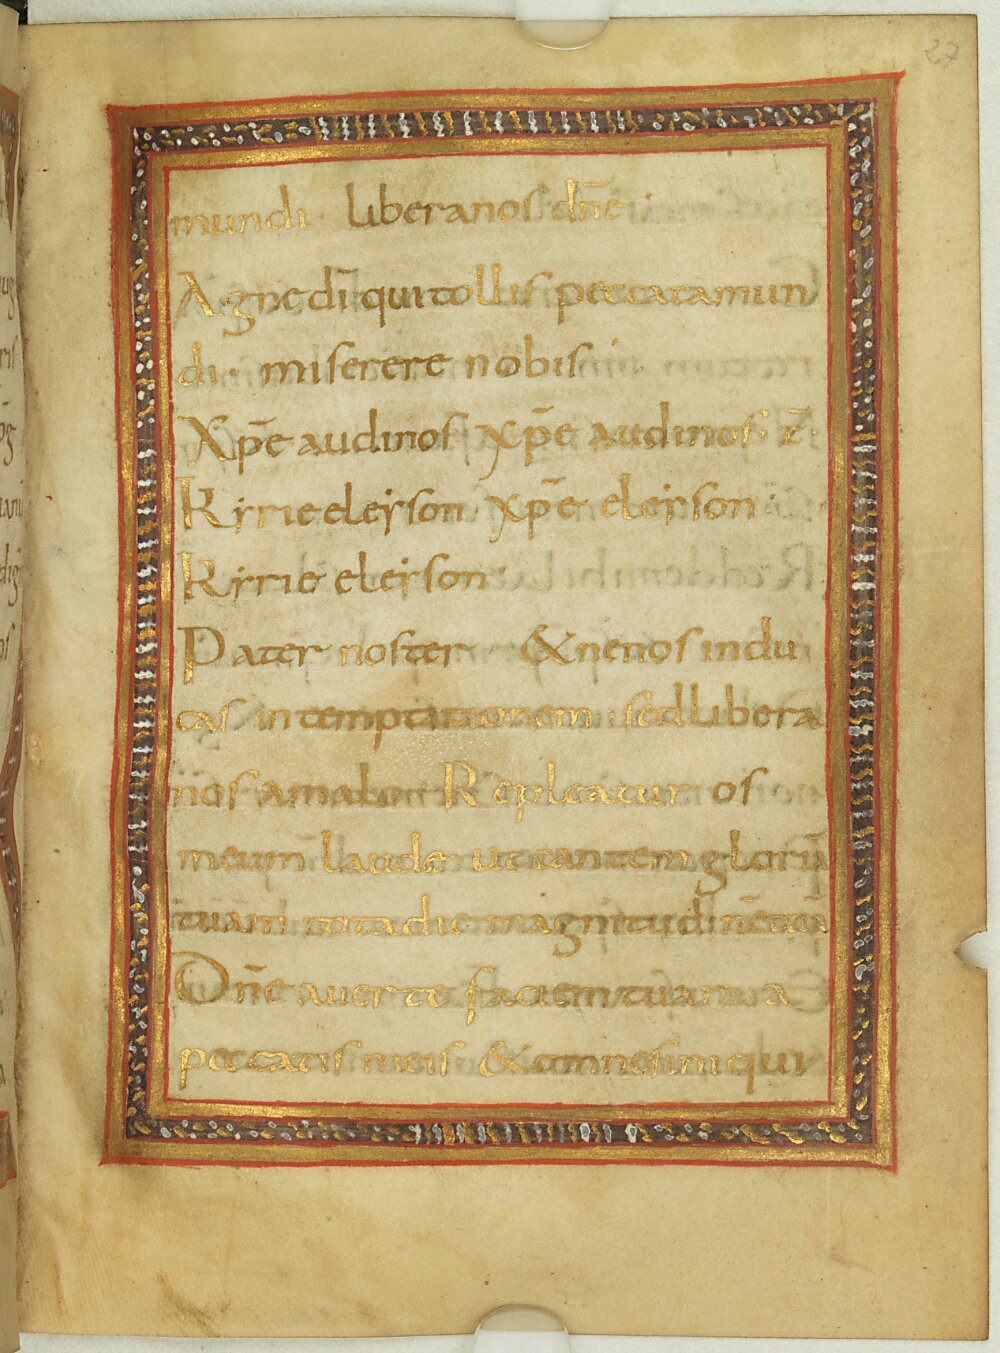 27
mundi· liberanos dn̄e·
Agne dī qui tollis peccata mun
di· miserere nobis·
Xp̄e audi nos xp̄e audi nos· z̄·
Kyrie eleyson xp̄e eleyson·
Kyrie eleyson·
Pater noster & ne nos indu
cas in temptationem sed libera
nos amalo· Repleatur os
meum laude ut cantem gloriā
tuam tota die magnitudinē tuā
Dn̄e auerte faciem tuam a
peccatis meis & omnes iniqui